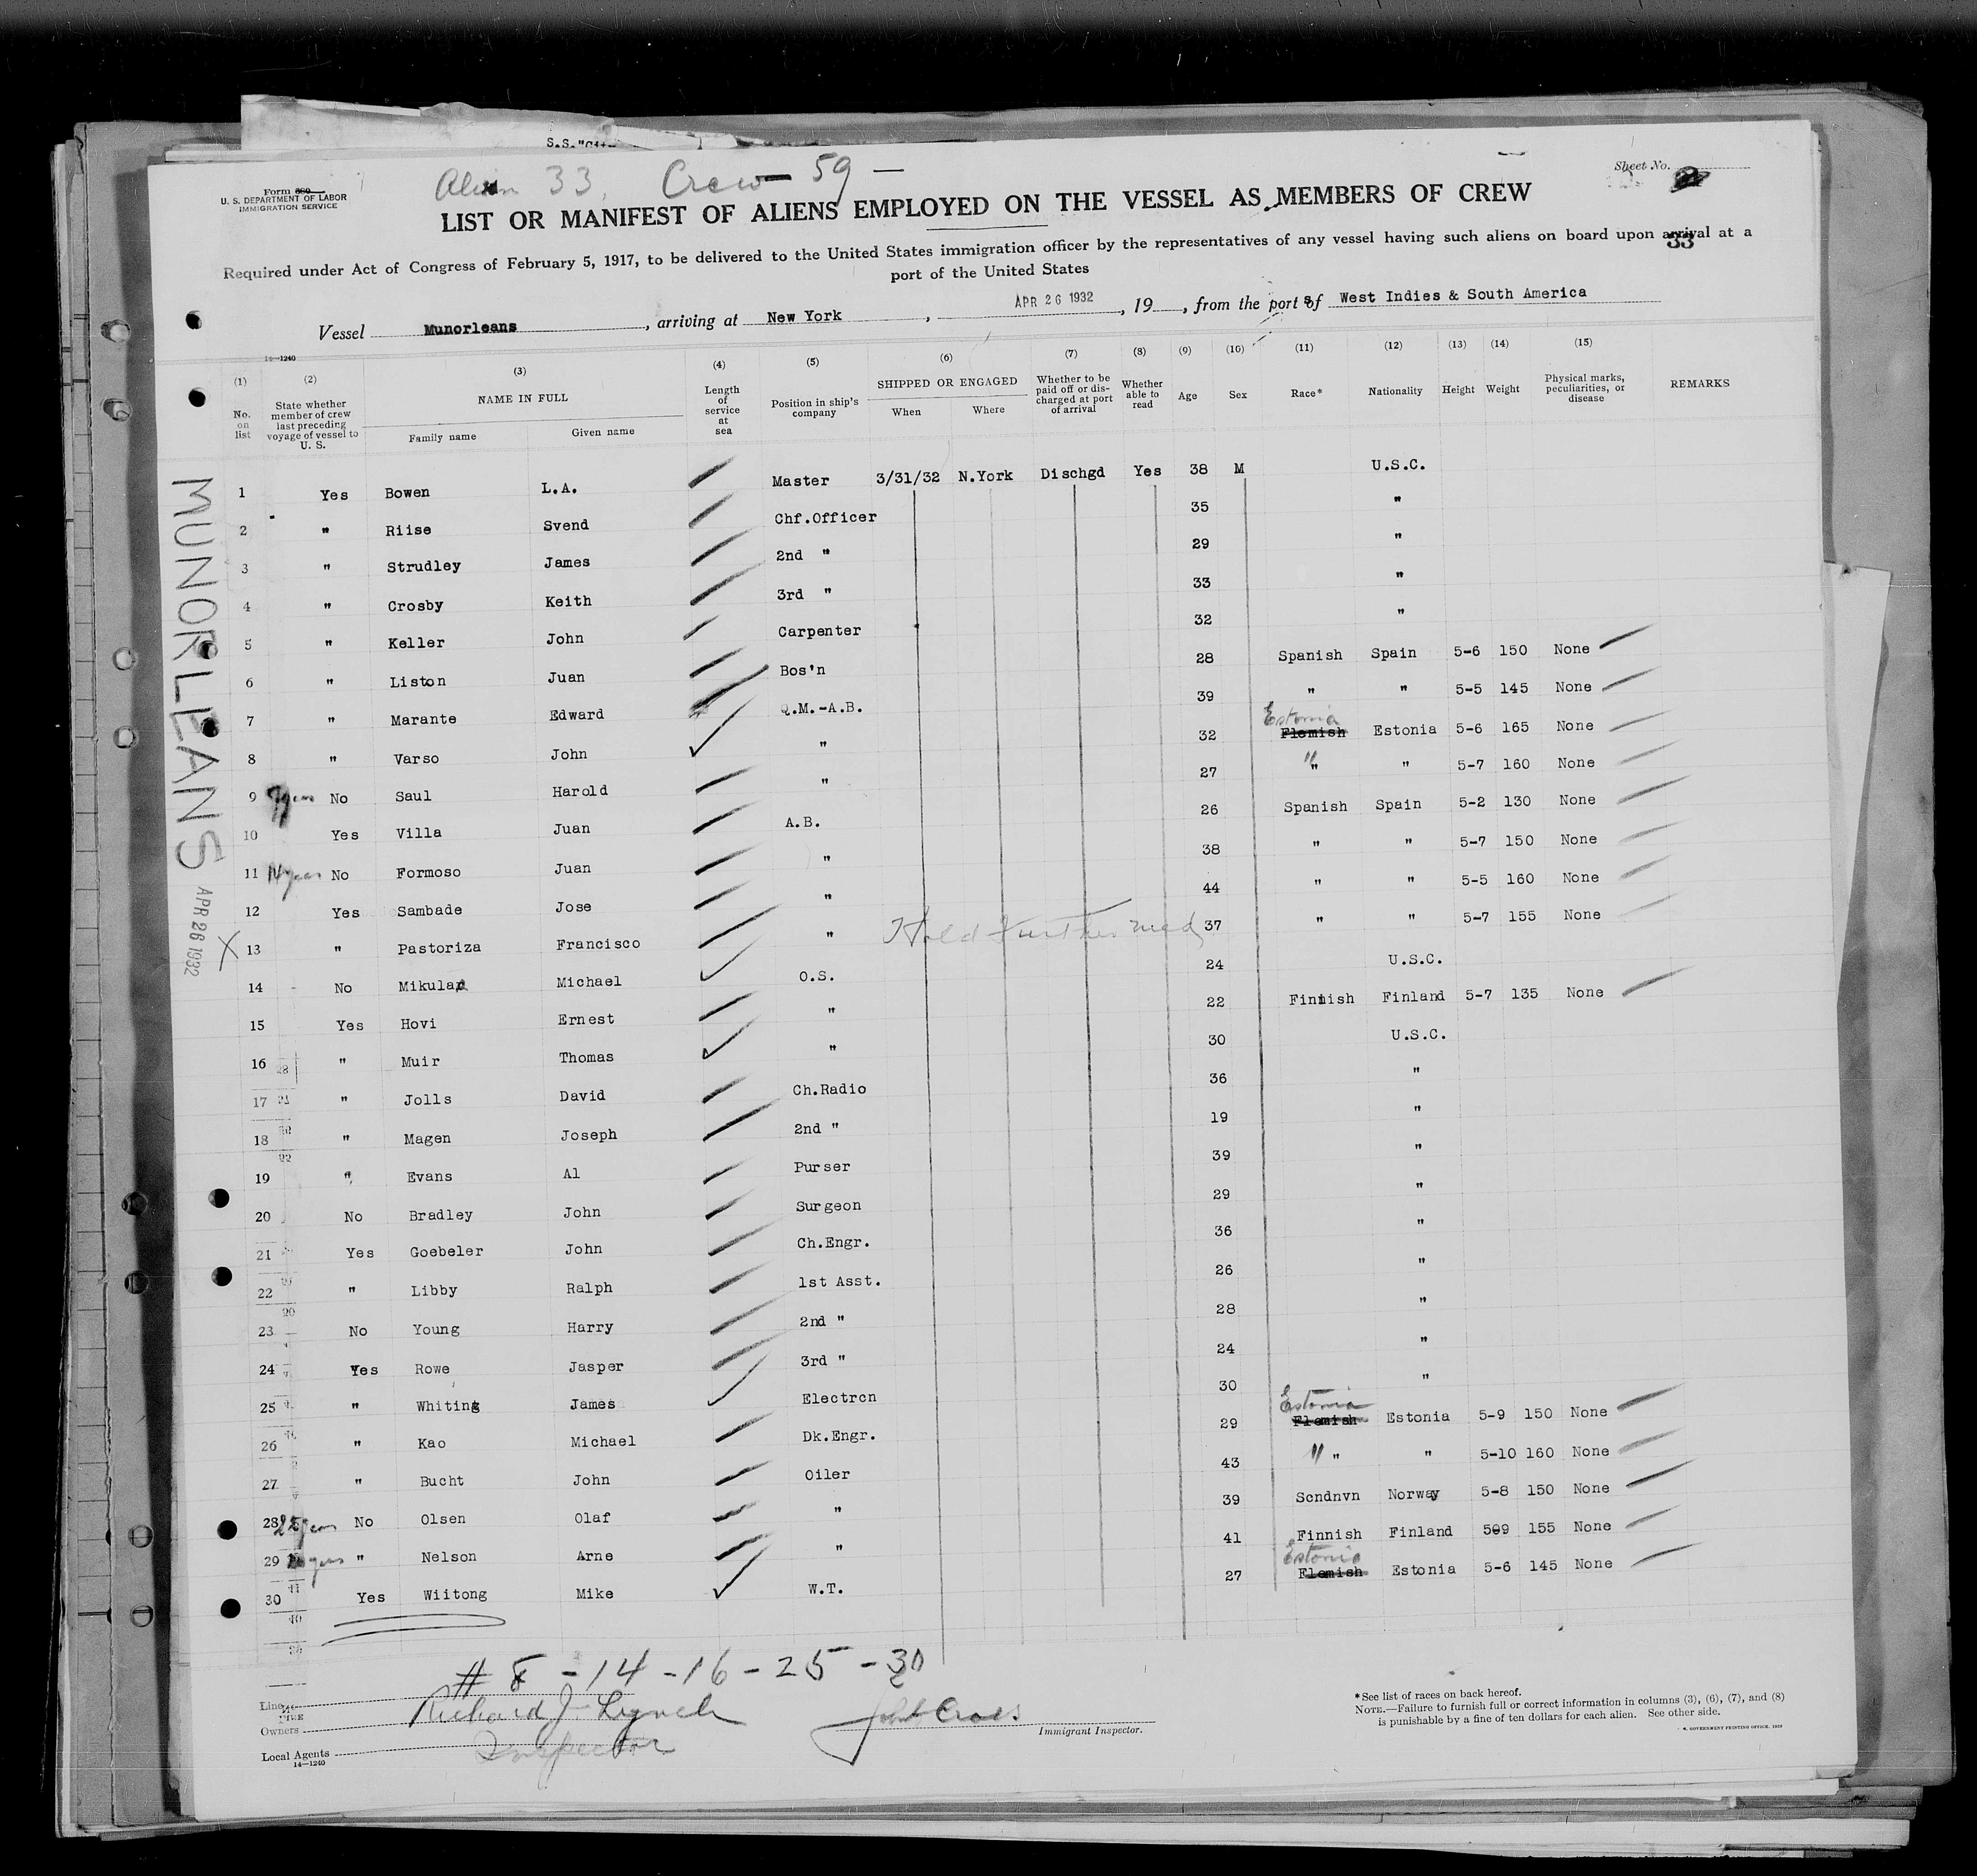 S.S.
Alien 33, Crew 59 —
Sheet No. 2
Form 680
U. S. DEPARTMENT OF LABOR
IMMIGRATION SERVICE
LIST OR MANIFEST OF ALIENS EMPLOYED ON THE VESSEL AS MEMBERS OF CREW
33
Required under Act of Congress of February 5, 1917, to be delivered to the United States immigration officer by the representatives of any vessel having such aliens on board upon arrival at a
port of the United States
Vessel Munorleans, arriving at New York, APR 26 1932, 19, from the port s of West Indies & South America
14—1240
(1) (2) (3) (4) (5) (6) (7) (8) (9) (10) (11) (12) (13) (14) (15)
No. on list State whether member of crew last preceding voyage of vessel to U. S. NAME IN FULL Family name Given name Length of service at sea Position in ship's company SHIPPED OR ENGAGED When Where Whether to be paid off or discharged at port of arrival Whether able to read Age Sex Race* Nationality Height Weight Physical marks, peculiarities, or disease REMARKS
MUNORLEANS APR 26 1932
1 Yes Bowen L.A. Master 3/31/32 N.York Dischgd Yes 38 M U.S.C.
2 " Riise Svend Chf.Officer 35 "
3 " Strudley James 2nd " 29 "
4 " Crosby Keith 3rd " 33 "
5 " Keller John Carpenter 32 "
6 " Liston Juan Bos'n 28 Spanish Spain 5-6 150 None
7 " Marante Edward Q.M.-A.B. 39 " " 5-5 145 None
8 " Varso John " 32 Flemish Estonia Estonia 5-6 165 None
9 No Saul Harold " 27 " " 5-7 160 None
10 Yes Villa Juan A.B. 26 Spanish Spain 5-2 130 None
11 14 years No Formoso Juan " 38 " " 5-7 150 None
12 Yes Sambade Jose " 44 " " 5-5 160 None
X 13 " Pastoriza Francisco " Hold further med 37 " " 5-7 155 None
14 - No Mikulap Michael O.S. 24 U.S.C.
15 Yes Hovi Ernest " 22 Finnish Finland 5-7 135 None
16 " Muir Thomas " 30 U.S.C.
17 " Jolls David Ch.Radio 36 "
18 " Magen Joseph 2nd " 19 "
19 " Evans Al Purser 39 "
20 No Bradley John Surgeon 29 "
21 Yes Goebeler John Ch.Engr. 36 "
22 " Libby Ralph 1st Asst. 26 "
23 No Young Harry 2nd " 28 "
24 Yes Rowe Jasper 3rd " 24 "
25 " Whiting James Electrcn 30 "
26 " Kao Michael Dk.Engr. 29 Flemish Estonia Estonia 5-9 150 None
27 " Bucht John Oiler 43 " " 5-10 160 None
28 No Olsen Olaf " 39 Scndnvn Norway 5-8 150 None
29 " Nelson Arne " 41 Finnish Finland 509 155 None
30 Yes Wiitong Mike W.T. 27 Flemish Estonia Estonia 5-6 145 None
# 8 - 14 - 16 - 25 - 30
Line
Owners
Richard J. Lynch
Inspector
Immigrant Inspector.
Local Agents
14—1240
*See list of races on back hereof.
NOTE.—Failure to furnish full or correct information in columns (3), (6), (7), and (8)
is punishable by a fine of ten dollars for each alien. See other side.
GOVERNMENT PRINTING OFFICE